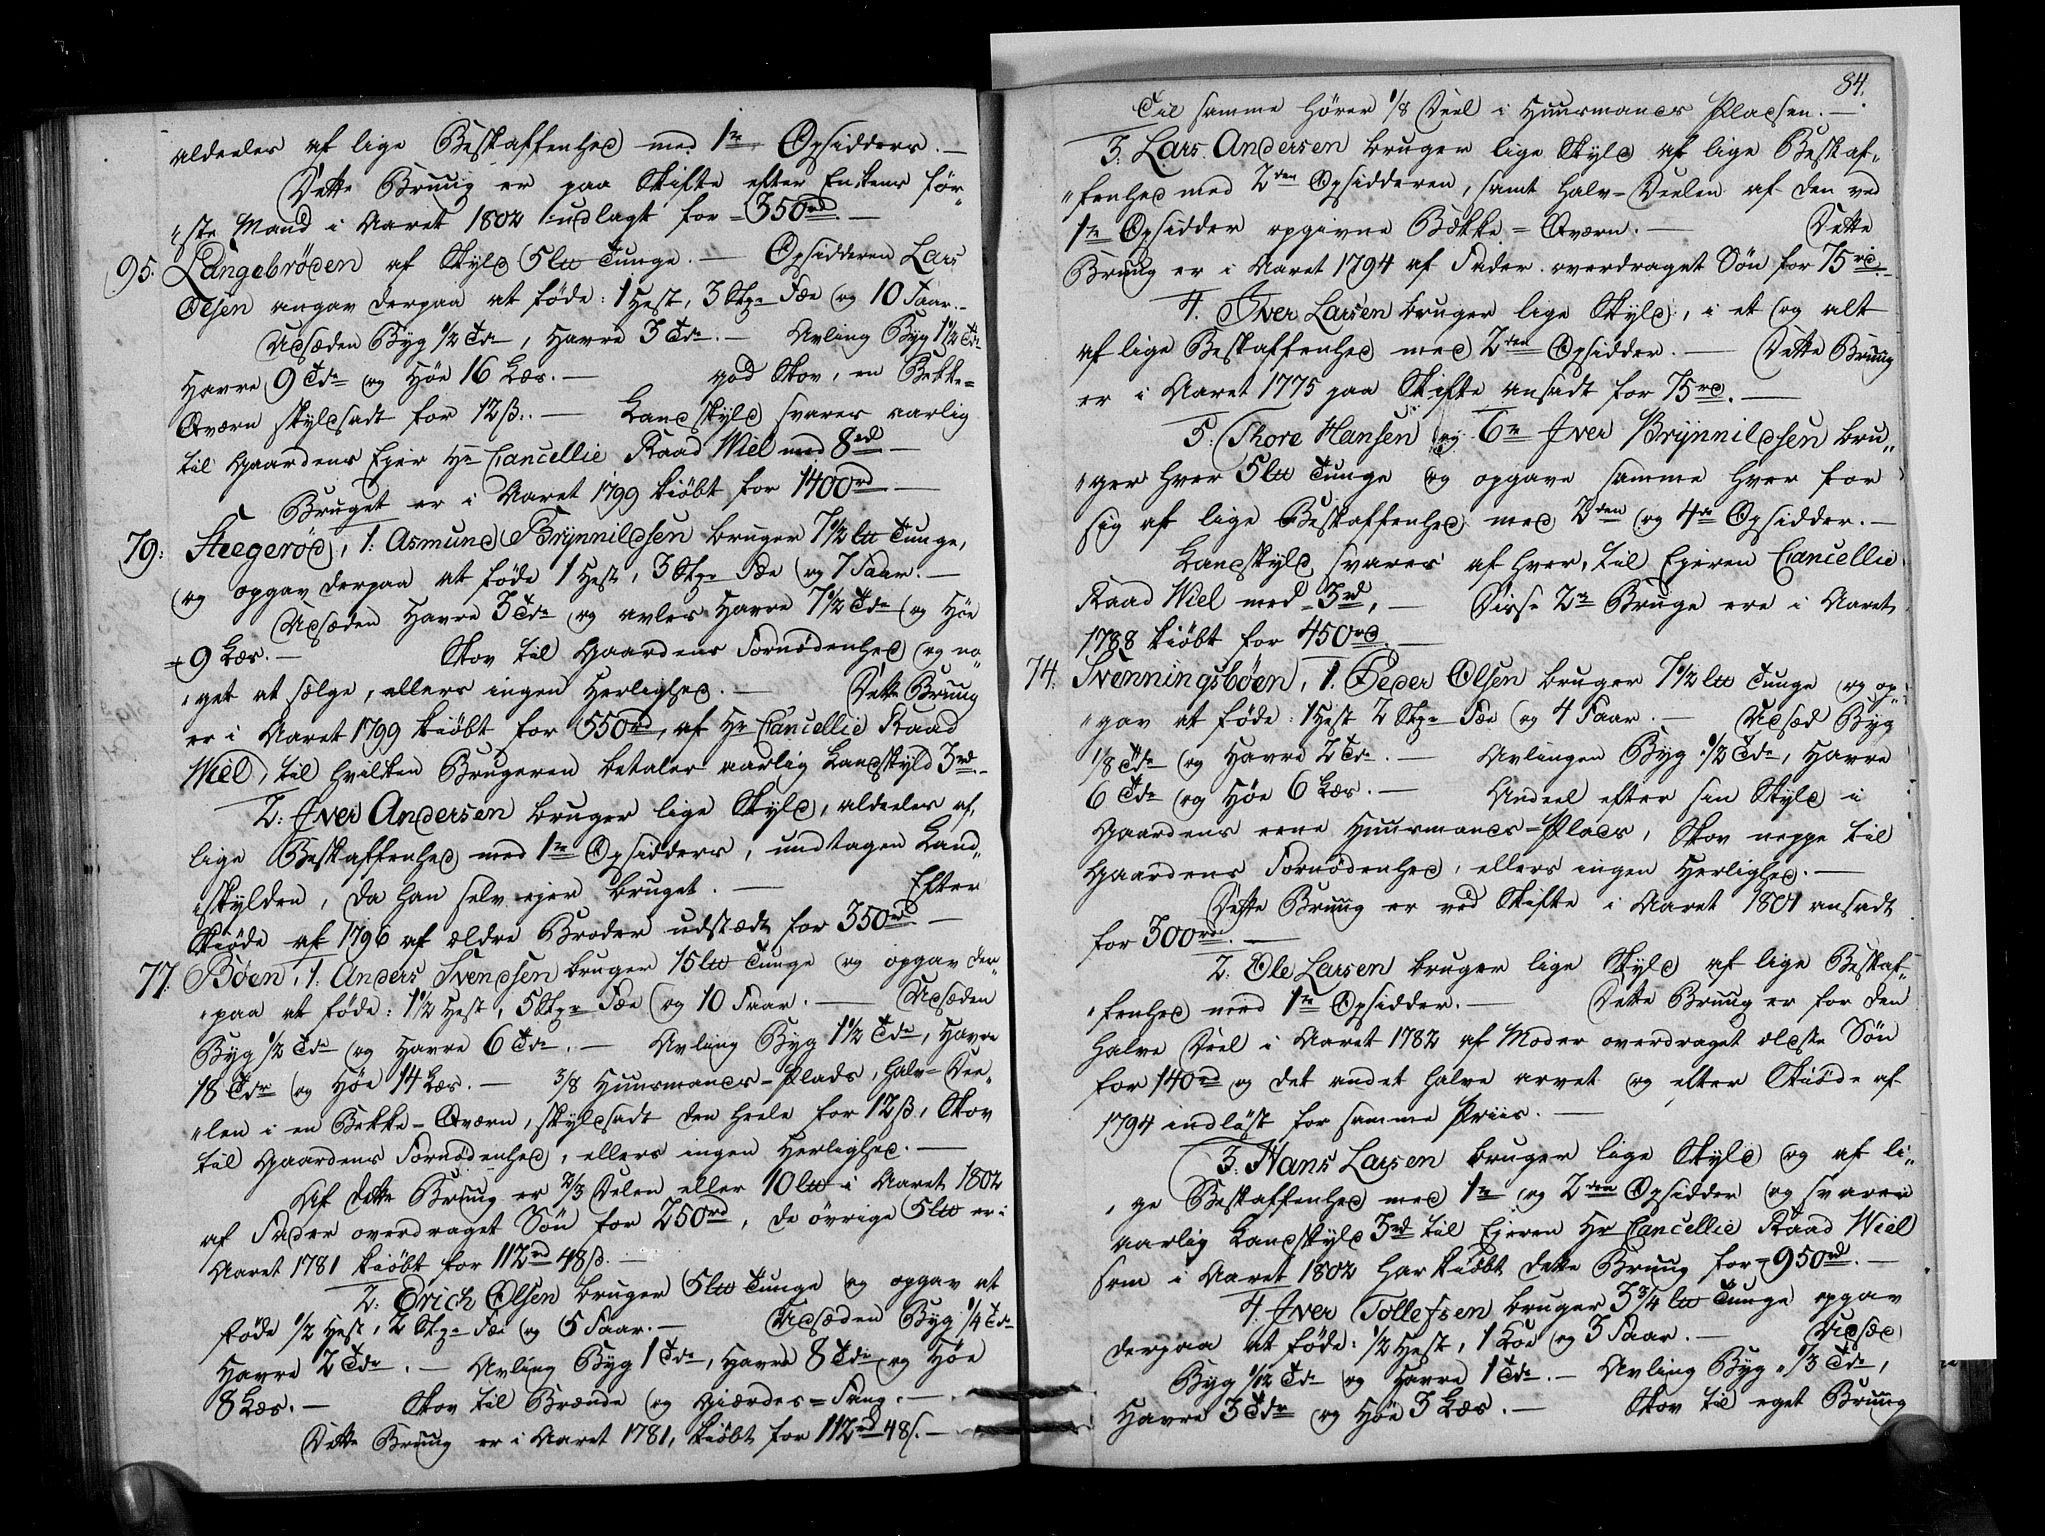 aldeeles af lige Beskaffenhed med 1te Opsidders. —
Dette Bruug er paa Skifte efter Enkens før„
„ste Mand i Aaret 1802 udlagt for 350rd. —
95. Langebrøden af Skyld 5 lb Tunge. — Opsidderen Lars
Olsen angav derpaa at føde: 1 Hest, 3 Stkr Fæe og 10 Faar. —
Udsæden Byg 1/2 Tde, Havre 3 Tdr. — Avling Byg 1 1/2 Tde
Havre 9 Tdr og Høe 16 Læs. — god Skov, en Bekke=
Qværn skyldsadt for 12 ß. — Landskyld svares aarlig
til Gaardens Ejer Hr Cancellie Raad Wiel med 8rd —
Bruget er i Aaret 1799 kiøbt for 1400rd —
79: Steegerød, 1: Asmund Brynnildsen bruger 7 1/2 lb Tunge,
og opgav derpaa at føde 1 Hest, 3 Stkr Fæe og 7 Faar. —
Udsæden Havre 3 Tdr og avles Havre 7 1/2 Tdr og Høe
9 Læs. — Skov til Gaardens Fornødenhed og no„
„get at sælge, ellers ingen Herlighed. — Dette Bruug
er i Aaret 1799 kiøbt for 550rd, af Hr Cancellie Raad
Wiel, til hvilken Brugeren betaler aarlig Landskyld 3rd. —
2: Iver Andersen bruger lige Skyld, aldeeles af
lige Beskaffenhed med 1te Opsidders, undtagen Land„
„skylden, da han selv ejer bruget. — Efter
Skiøde af 1796 af ældre Broder udstædt for 350rd —
77. Bøen, 1: Anders Svendsen bruger 15 lb Tunge og opgav der„
„paa at føde: 1 1/2 Hest, 5 Stkr Fæe og 10 Faar. — Udsæden
Byg 1/2 Tde og Havre 6 Tdr. — Avling Byg 1 1/2 Tde, Havre
18 Tdr og Høe 14 Læs. — 3/8 Huusmands-Plads, halv-Dee„
„len i en Bekke-Qværn, skyldsadt den heele for 12 ß, Skov
til Gaardens Fornødenhed, ellers ingen Herlighed. —
Af dette Bruug er 2/3 Delen eller 10 lb i Aaret 1802
af Fader overdraget Søn for 250rd, de øvrige 5 lb er i
Aaret 1781 kiøbt for 112rd 48 ß. —
2: Erich Olsen bruger 5 lb Tunge og opgav at
føde 1/2 Hest, 2 Stkr Fæe og 5 Faar. — Udsæden Byg 1/4 Tde
Havre 2 Tdr. — Avling Byg 1 Tde, Havre 8 Tdr og Høe
8 Læs. — Skov til Brænde og Giærdes=Fang. —
Dette Bruug er i Aaret 1781, kiøbt for 112rd 48 ß. —
84.
Til samme hører 1/8 Deel i Huusmands Pladsen. —
3: Lars Andersen bruger lige Skyld af lige Beskaf„
„fenhed med 2den Opsidderen, samt halv-Deelen af den ved
1te Opsidder opgivne Bække=Qværn. — Dette
Bruug er i Aaret 1794 af Fader overdraget Søn for 75rd. —
4. Iver Larsen bruger lige Skyld, i et og alt
af lige Beskaffenhed med 2den Opsidder. — Dette Bruug
er i Aaret 1775 paa Skifte ansadt for 75rd. —
5: Thore Hansen og 6te Iver Brynnildsen bru„
„ger hver 5 lb Tunge og opgave samme hver for
sig af lige Beskaffenhed med 2den og 4de Opsidder. —
Landskyld svares af hver, til Ejeren Cancellie
Raad Wiel med 3rd, — Disse 2de Bruge ere i Aaret
1788 kiøbt for 450rd. —
74. Svenningsbøen, 1. Peder Olsen bruger 7 1/2 lb Tunge og op„
„gav at føde: 1 Hest 2 Stkr Fæe og 4 Faar. — Udsæd Byg
1/8 Tde og Havre 2 Tdr. — Avlingen Byg: 1/2 Tde, Havre
6 Tdr og Høe 6 Læs. — Andeel efter sin Skyld i
Gaardens eene Huusmands-Plads, Skov neppe til
Gaardens Fornødenhed, ellers ingen Herlighed. —
Dette Bruug er ved Skifte i Aaret 1801 ansadt
for 300rd. —
2: Ole Larsen bruger lige Skyld af lige Beskaf„
„fenhed med 1te Opsidder. — Dette Bruug er for den
halve Deel i Aaret 1782 af Moder overdraget ælste Søn
for 140rd og det andet halve arvet og efter Skiøde af
1794 indløst for samme Priis. —
3: Hans Larsen bruger lige Skyld og af li„
„ge Beskaffenhed med 1te og 2den Opsidder og svarer
aarlig Landskyld 3rd til Ejeren Hr Cancellie Raad Wiel
som i Aaret 1802 har kiøbt dette Bruug for 950rd. —
4. Iver Tollefsen bruger 3 3/4 lb Tunge opgav
derpaa at føde: 1/2 Hest, 1 Koe og 3 Faar. — Udsæd
Byg 1/12 Tde og Havre 1 Tde. — Avling Byg 1/3 Tde,
Havre 3 Tdr og Høe 3 Læs. — Skov til eget Bruug